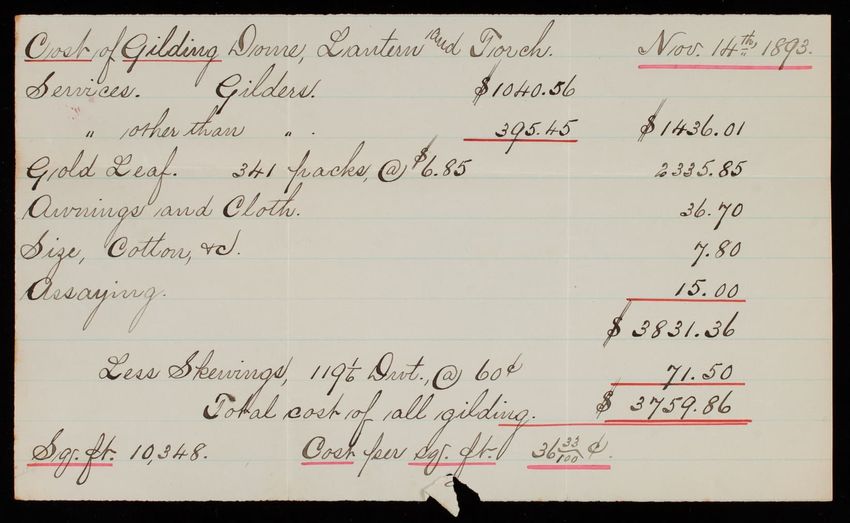 Cost of Gilding Dome, Lantern and Torch. Nov. 14th 1893.
Services. Gilders. $1040.56
" other than " . 395.45 $1436.01
Gold Leaf. 341 packs, @ $6.85 2335.85
Awnings and Cloth. 36.70
Size, Cotton, &c. 7.80
Assaying. 15.00
$ 3831.36
Less Skewings, 119 1/6 Dwt., @ 60¢ 71.50
Total cost of all gilding. $ 3759.86
Sq. ft. 10,348. Cost per sq. ft. 36 33/100 ¢.